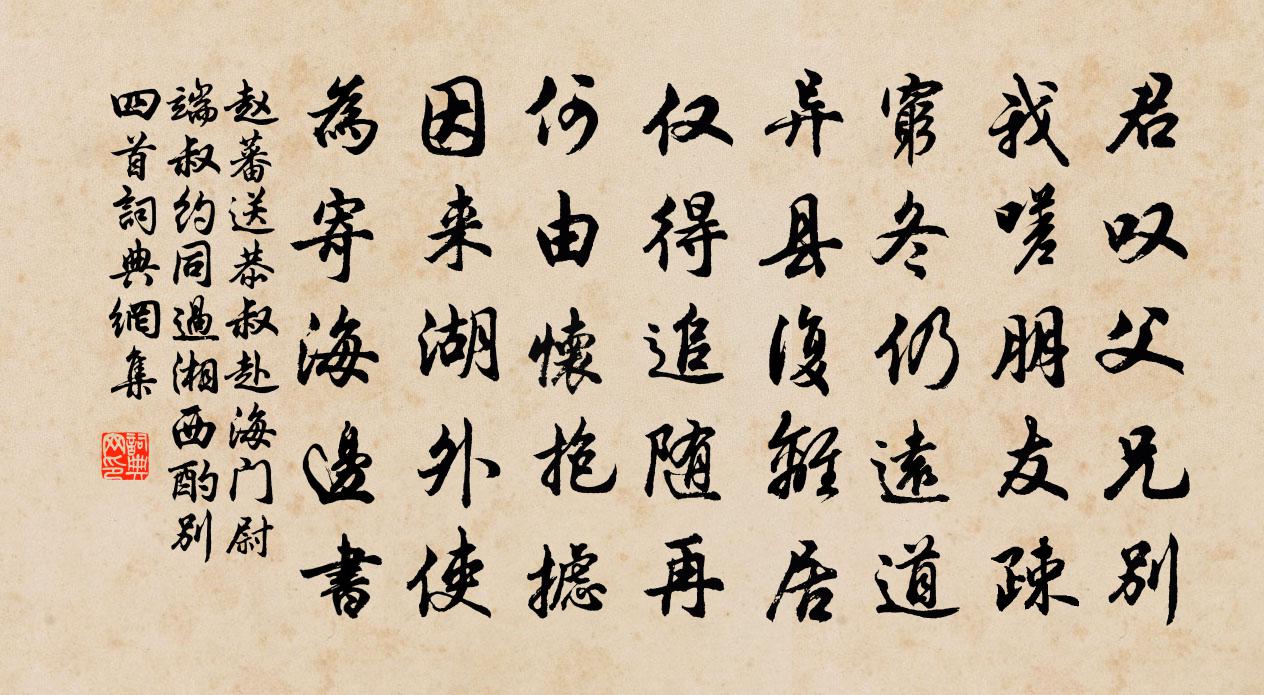 君叹父兄别
我嗟朋友疎
穷冬仍遠道
异县復離居
仅得追随再
何由懷抱摅
因来湖外使
為寄海邊書
赵蕃送恭叔赴海门尉
端叔约同過湘西酌别
四首詞典網集
詞典
网印